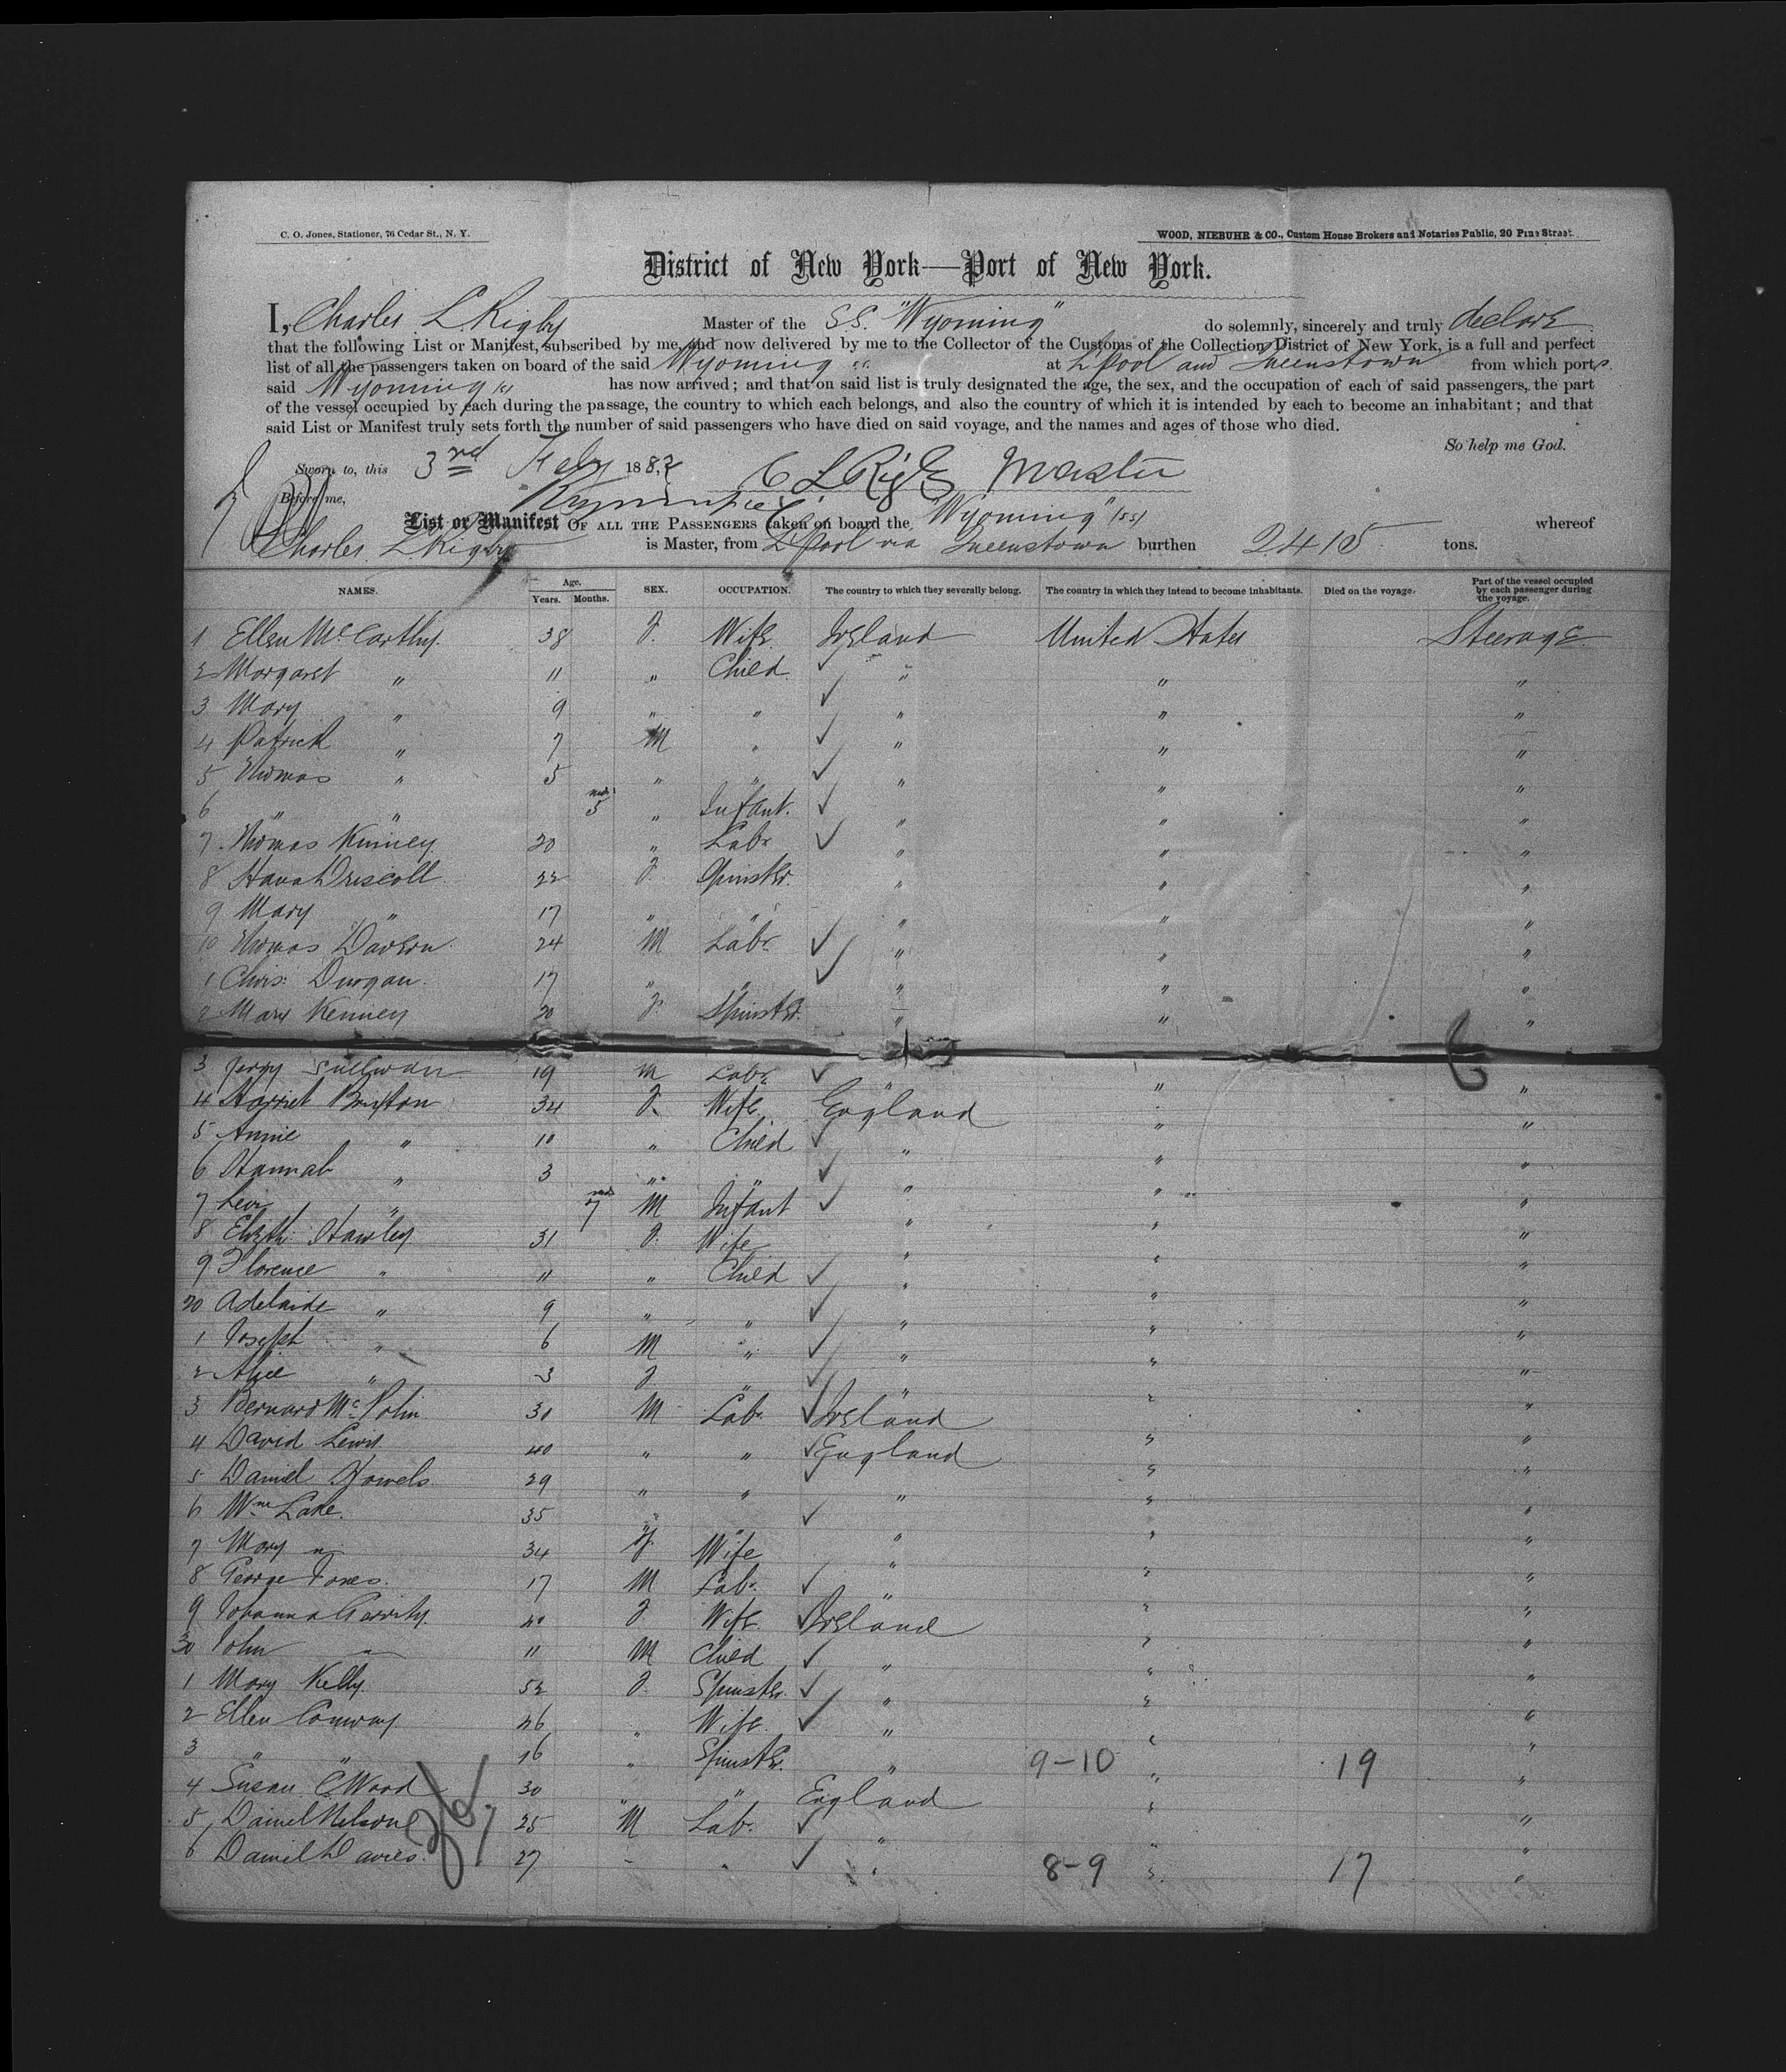 C. O. Jones, Stationer, 76 Cedar St., N. Y.
WOOD, NIEBUHR & CO., Custom House Brokers and Notaries Public, 20 Pine Street.
District of New York—Port of New York.
I, Charles L Rigby Master of the S.S. "Wyoming" do solemnly, sincerely and truly declare
that the following List or Manifest, subscribed by me, and now delivered by me to the Collector of the Customs of the Collection District of New York, is a full and perfect
list of all the passengers taken on board of the said Wyoming at L'pool and Queenstown from which ports
said Wyoming has now arrived; and that on said list is truly designated the age, the sex, and the occupation of each of said passengers, the part
of the vessel occupied by each during the passage, the country to which each belongs, and also the country of which it is intended by each to become an inhabitant; and that
said List or Manifest truly sets forth the number of said passengers who have died on said voyage, and the names and ages of those who died.
So help me God.
Sworn to, this 3rd Feby 1882 C L Rigby Master
Before me,
List or Manifest OF ALL THE PASSENGERS taken on board the "Wyoming" (SS) whereof
Charles L Rigby is Master, from L'pool via Queenstown burthen 2415 tons.
NAMES. Age. Years. Months. SEX. OCCUPATION. The country to which they severally belong. The country in which they intend to become inhabitants. Died on the voyage. Part of the vessel occupied by each passenger during the voyage.
1 Ellen McCarthy. 38 F. Wife Ireland United States Steerage
2 Margaret " 11 " Child ✓ " " "
3 Mary " 9 " " ✓ " " "
4 Patrick " 7 M " ✓ " " "
5 Thomas " 5 " " ✓ " " "
6 " " mos 5 " Infant. ✓ " " "
7 Thomas Kinney. 20 " Labr ✓ " " "
8 Hana Driscoll 22 F. Spinster. " " "
9 Mary " 17 " " " " "
10 Thomas 24 M Labr ✓ " " "
1 Chris: Durgan. 17 " " ✓ " " "
2 Mary Kenney 20 F. Spinster. " " "
3 Jerry Sullivan 19 M Labr ✓ " " "
4 Harriet 34 F. Wife England " "
5 Annie " 10 " Child ✓ " " "
6 Hannah " 3 " " ✓ " " "
7 Levi " mos 7 M Infant ✓ " " "
8 Elizth Hawley 31 F. Wife " " "
9 Florence " 11 " Child ✓ " " "
20 Adelaide " 9 " " ✓ " " "
1 Joseph " 6 M " ✓ " " "
2 Alice " 3 F. " ✓ " " "
3 Bernard McPolin 30 M Labr ✓ Ireland " "
4 David Lewis 40 " " ✓ England " "
5 Daniel Howels 29 " " ✓ " " "
6 Wm Lake. 35 " " ✓ " " "
7 Mary " 34 F. Wife " " "
8 George Jones. 17 M Labr. ✓ " " "
9 Johanna Gerrity. 40 F. Wife ✓ Ireland " "
30 John " 11 M Child ✓ " " "
1 Mary Kelly. 52 F. Spinster. ✓ " " "
2 Ellen Conway. 46 " Wife. ✓ " " "
3 " " 16 " Spinster. " 9-10 " 19 "
4 Susan C Wood 30 " " England " "
5 Daniel Nelson 25 M Labr. ✓ " " "
6 Daniel Davies. 27 " " ✓ " 8-9 " 17 "
36